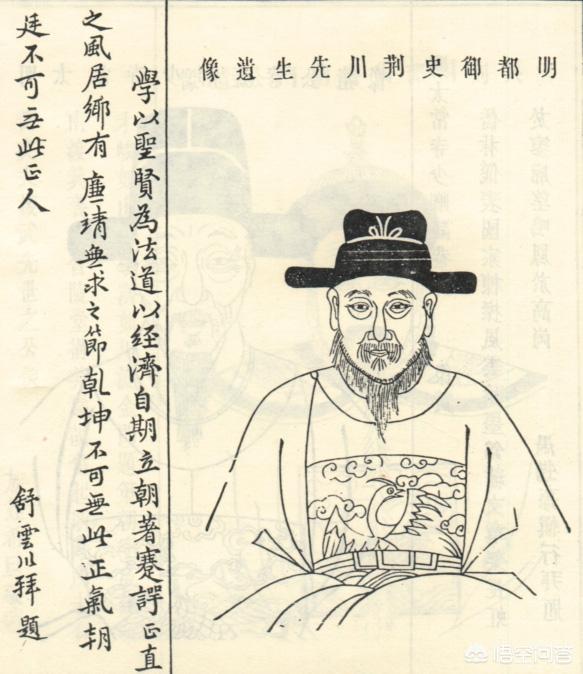 明都御史荆川先生遺像
學以聖賢為法道以经濟自期立朝著蹇諤正直
之風居鄉有廉靖無求之節乾坤不可無此正氣朝
廷不可无此正人
舒雲川拜題
悟空问答